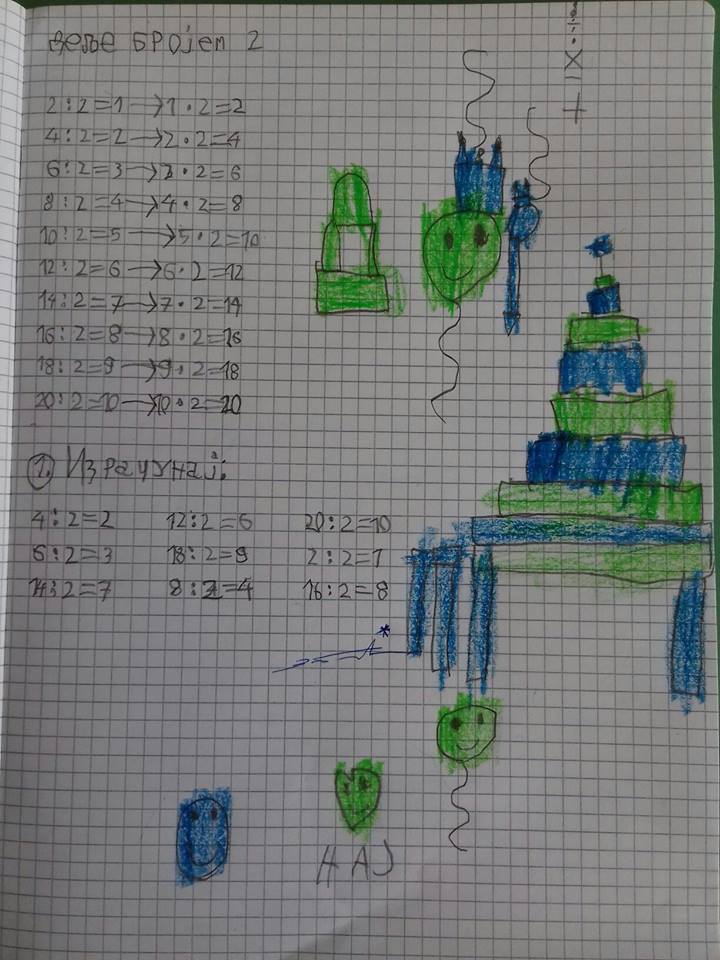 дељње бројем 2
2:2=1→1·2=2
4:2=2→2·2=4
6:2=3→3·2=6
8:2=4→4·2=8
10:2=5→5·2=10
12:2=6→6·2=12
14:2=7→7·2=14
16:2=8→8·2=16
18:2=9→9·2=18
20:2=10→10·2=20
1. Израчунај:
4:2=2 12:2=6 20:2=10
6:2=3 18:2=9 2:2=1
14:2=7 8:2=4 16:2=8
НАЈ
+ – X ÷